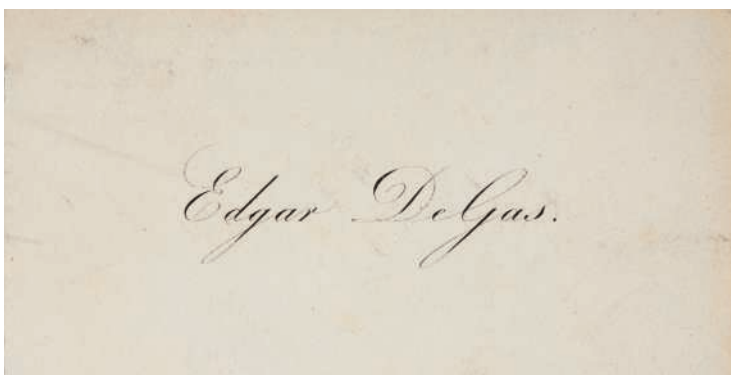 Edgar DeGas.